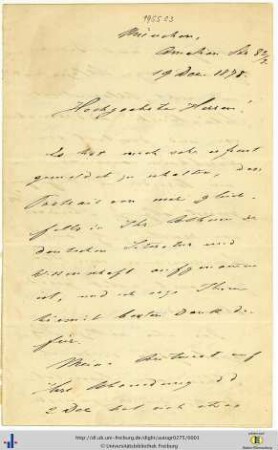 195503
München,
19 Dec. 1878.
Hochgeehrte Herren!
Es hat mich sehr erfreut
zu erhalten, das
Portrait von mir gleich-
falls in Ihr Album der
deutschen Literatur und
Wissenschaft aufgenommen
ist, und ich sage Ihnen
hiemit besten Dank da-
für.
Meine Antwort auf
Ihre
2 Dec hat sich etwas
http://dl.ub.uni-freiburg.de/diglit/autogr0275/0001
© Universitätsbibliothek Freiburg